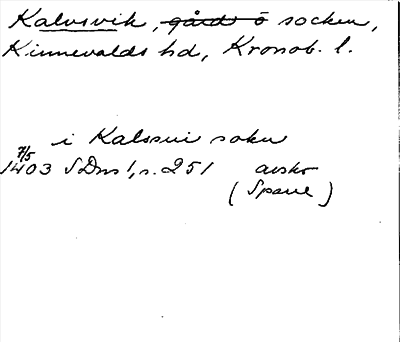 Kalvsvik, gård ö socken,
Kinnevalds hd, Kronob. l.
i Kalssui sokn
7/5
1403 SDns 1, s. 251 avskr
(Spare)